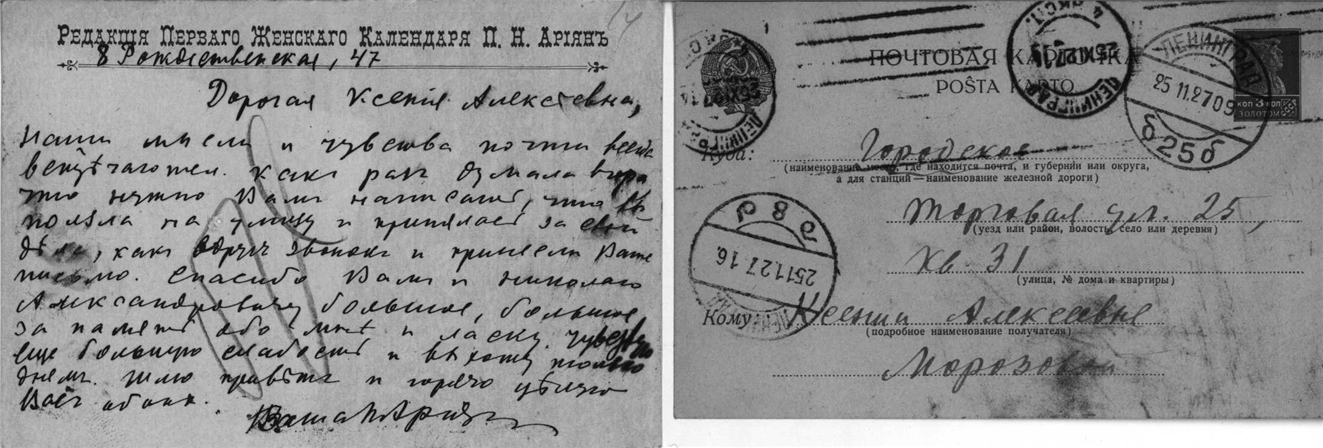 14
Редакція Перваго Женскаго Календаря П. Н. Аріянъ
8 Рождественская, 47
Дорогая Ксенія Алексѣевна,
Наши мысли и чувства почти всегда
встрѣчаются. Какъ разъ думала вчера
что нужно Вамъ написать,
на улицу и принялась за свои
дѣла, какъ вдругъ звонокъ и принесли Ваше
письмо. Спасибо Вамъ и Николаю
Александровичу большое, большое
за память обо мнѣ и ласку. Чувствую
еще большую слабость и выхожу только
днемъ. Шлю привѣтъ и горячо цѣлую
Васъ обоихъ.
Ваша П. Аріянъ
ПОЧТОВАЯ КАРТОЧКА
POŜTA KARTO
КОП 3 КОП
ЗОЛОТОМ
ЛЕНИНГРАД
25.11.27 09
6 25 6
ЛЕНИНГРАД
25XI27
4 ЭКСП.
ЛЕНИНГРАД
25XI27
Куда: Городское
(наименование места, где находится почта, и губернии или округа,
а для станций — наименование железной дороги)
Торговая ул. 25,
(уезд или район, волость, село или деревня)
кв. 31
(улица, № дома и квартиры)
25.11.27 16
Кому: Ксении Алексеевне
(подробное наименование получателя)
Морозовой